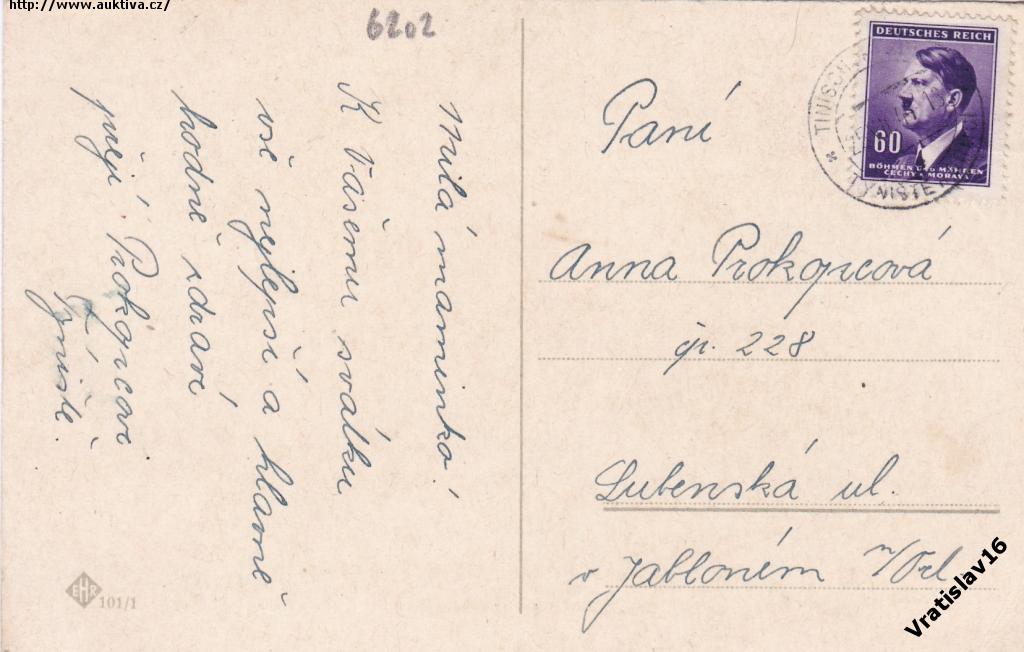 http://www.auktiva.cz/
6202
Milá maminko!
K Vašemu svátku
vše nejlepší a hlavně
hodně zdraví
přejí Prokopcovi
Týniště.
EHR
101/1
DEUTSCHES REICH
60
BÖHMEN UND MÄHREN
ČECHY A MORAVA
TINISCH
TÝNIŠTĚ
Paní
Anna Prokopcová
čp. 228
Lubenská ul.
v Jabloném n/Orl.
Vratislav16